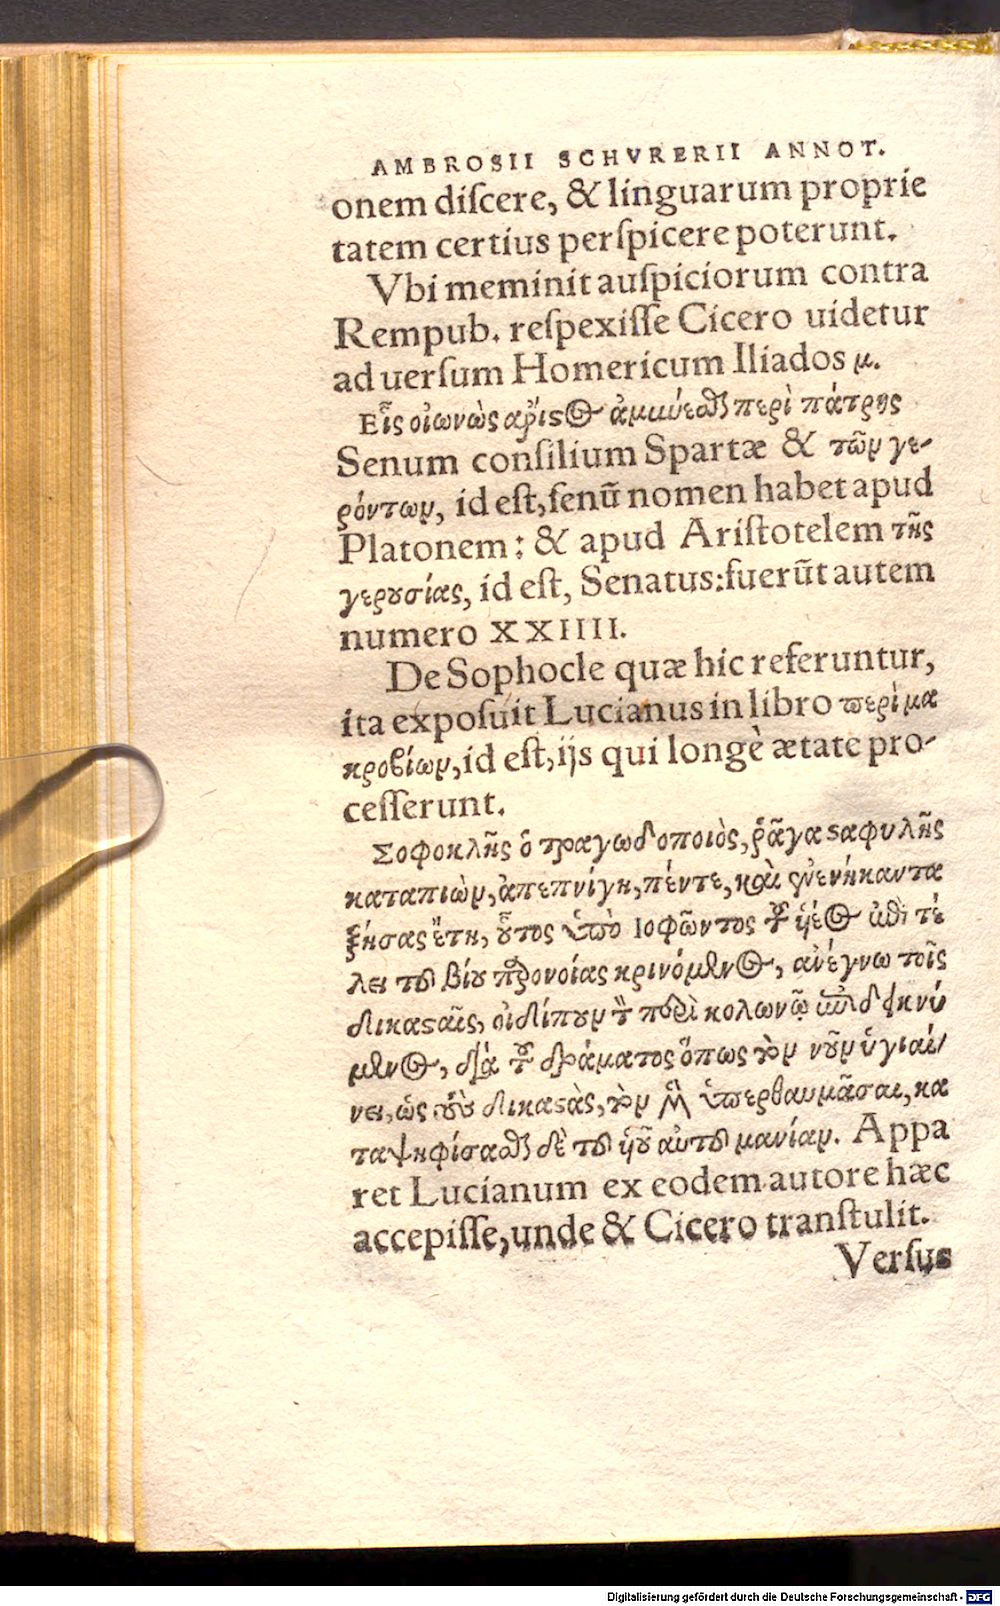 AMBROSII SCHVRERII ANNOT.
onem diſcere, & linguarum proprie
tatem certius perſpicere poterunt.
Vbi meminit auſpiciorum contra
Rempub. reſpexiſſe Cicero uidetur
ad uerſum Homericum Iliados μ.
Εἷς οἰωνὸς ἄριϛος ἀμμύεσθαι περὶ πάτρης
Senum conſilium Spartæ & τῶν γε-
ρόντων, id eſt, ſenũ nomen habet apud
Platonem: & apud Ariſtotelem τῆς
γερȣσίας, id eſt, Senatus: fuerũt autem
numero XXIIII.
De Sophocle quæ hic referuntur,
ita expoſuit Lucianus in libro ϖερὶ μα
κροβίων, id eſt, ijs qui longè ætate pro-
ceſſerunt.
Σοφοκλῆς ὁ τραγωδοποιὸς, ῥᾶγα ϛαφυλῆς
καταπιὼν, ἀπεπνίγη, πέντε, καὶ ἐνενήκοντα
ζήσας ἔτη, ȣ̓͂τος ὑπὸ Ιοφῶντος τȣ͂ ὑέος ἐπὶ τέ
λει τȣ͂ βίȣ παρανοίας κρινόμενος, ἀνέγνω τοῖς
δικαϛαῖς, οἰδίπȣν τὸν ἐπὶ κολωνῷ ἐπιδεικνύ
μενος, διὰ τȣ͂ δράματος ὅπως τὸν νοῦν ὑγιαί/
νει, ὡς τοὺς δικαϛὰς, τὸν μὲν ὑπερθαυμᾶσαι, κα
ταψηφίσασθαι δὲ τȣ͂ ὑȣ͂ αὐτȣ͂ μανίαν. Appa
ret Lucianum ex eodem autore hæc
accepiſſe, unde & Cicero tranſtulit.
Verſus
Digitalisierung gefördert durch die Deutsche Forschungsgemeinschaft - DFG